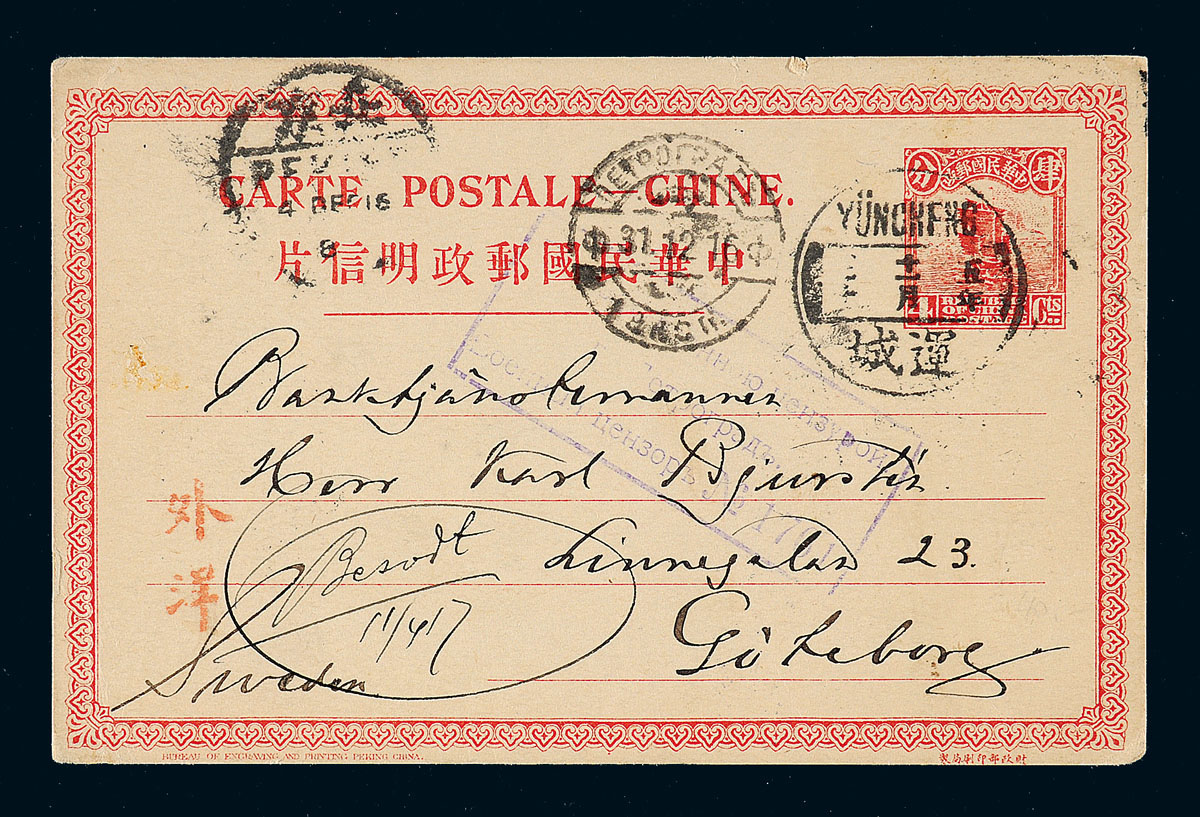 北京
PEKING
4 DEC 16
8
CARTE POSTALE—CHINE.
中華民國郵政明信片
ПЕТРОГРАДЪ
31.12.16
中華民國郵政
肆 分
4 Cts
REPUBLIC
OF CHINA
POSTAGE
YÜNCHENG
運城
цензурой
Петроградъ
цензоръ
Herr Karl Bjurstén
Linnégatan 23.
Göteborg
Sweden
Besvdt
11/4 17
外洋
BUREAU OF ENGRAVING AND PRINTING PEKING CHINA.
財政部印刷局製